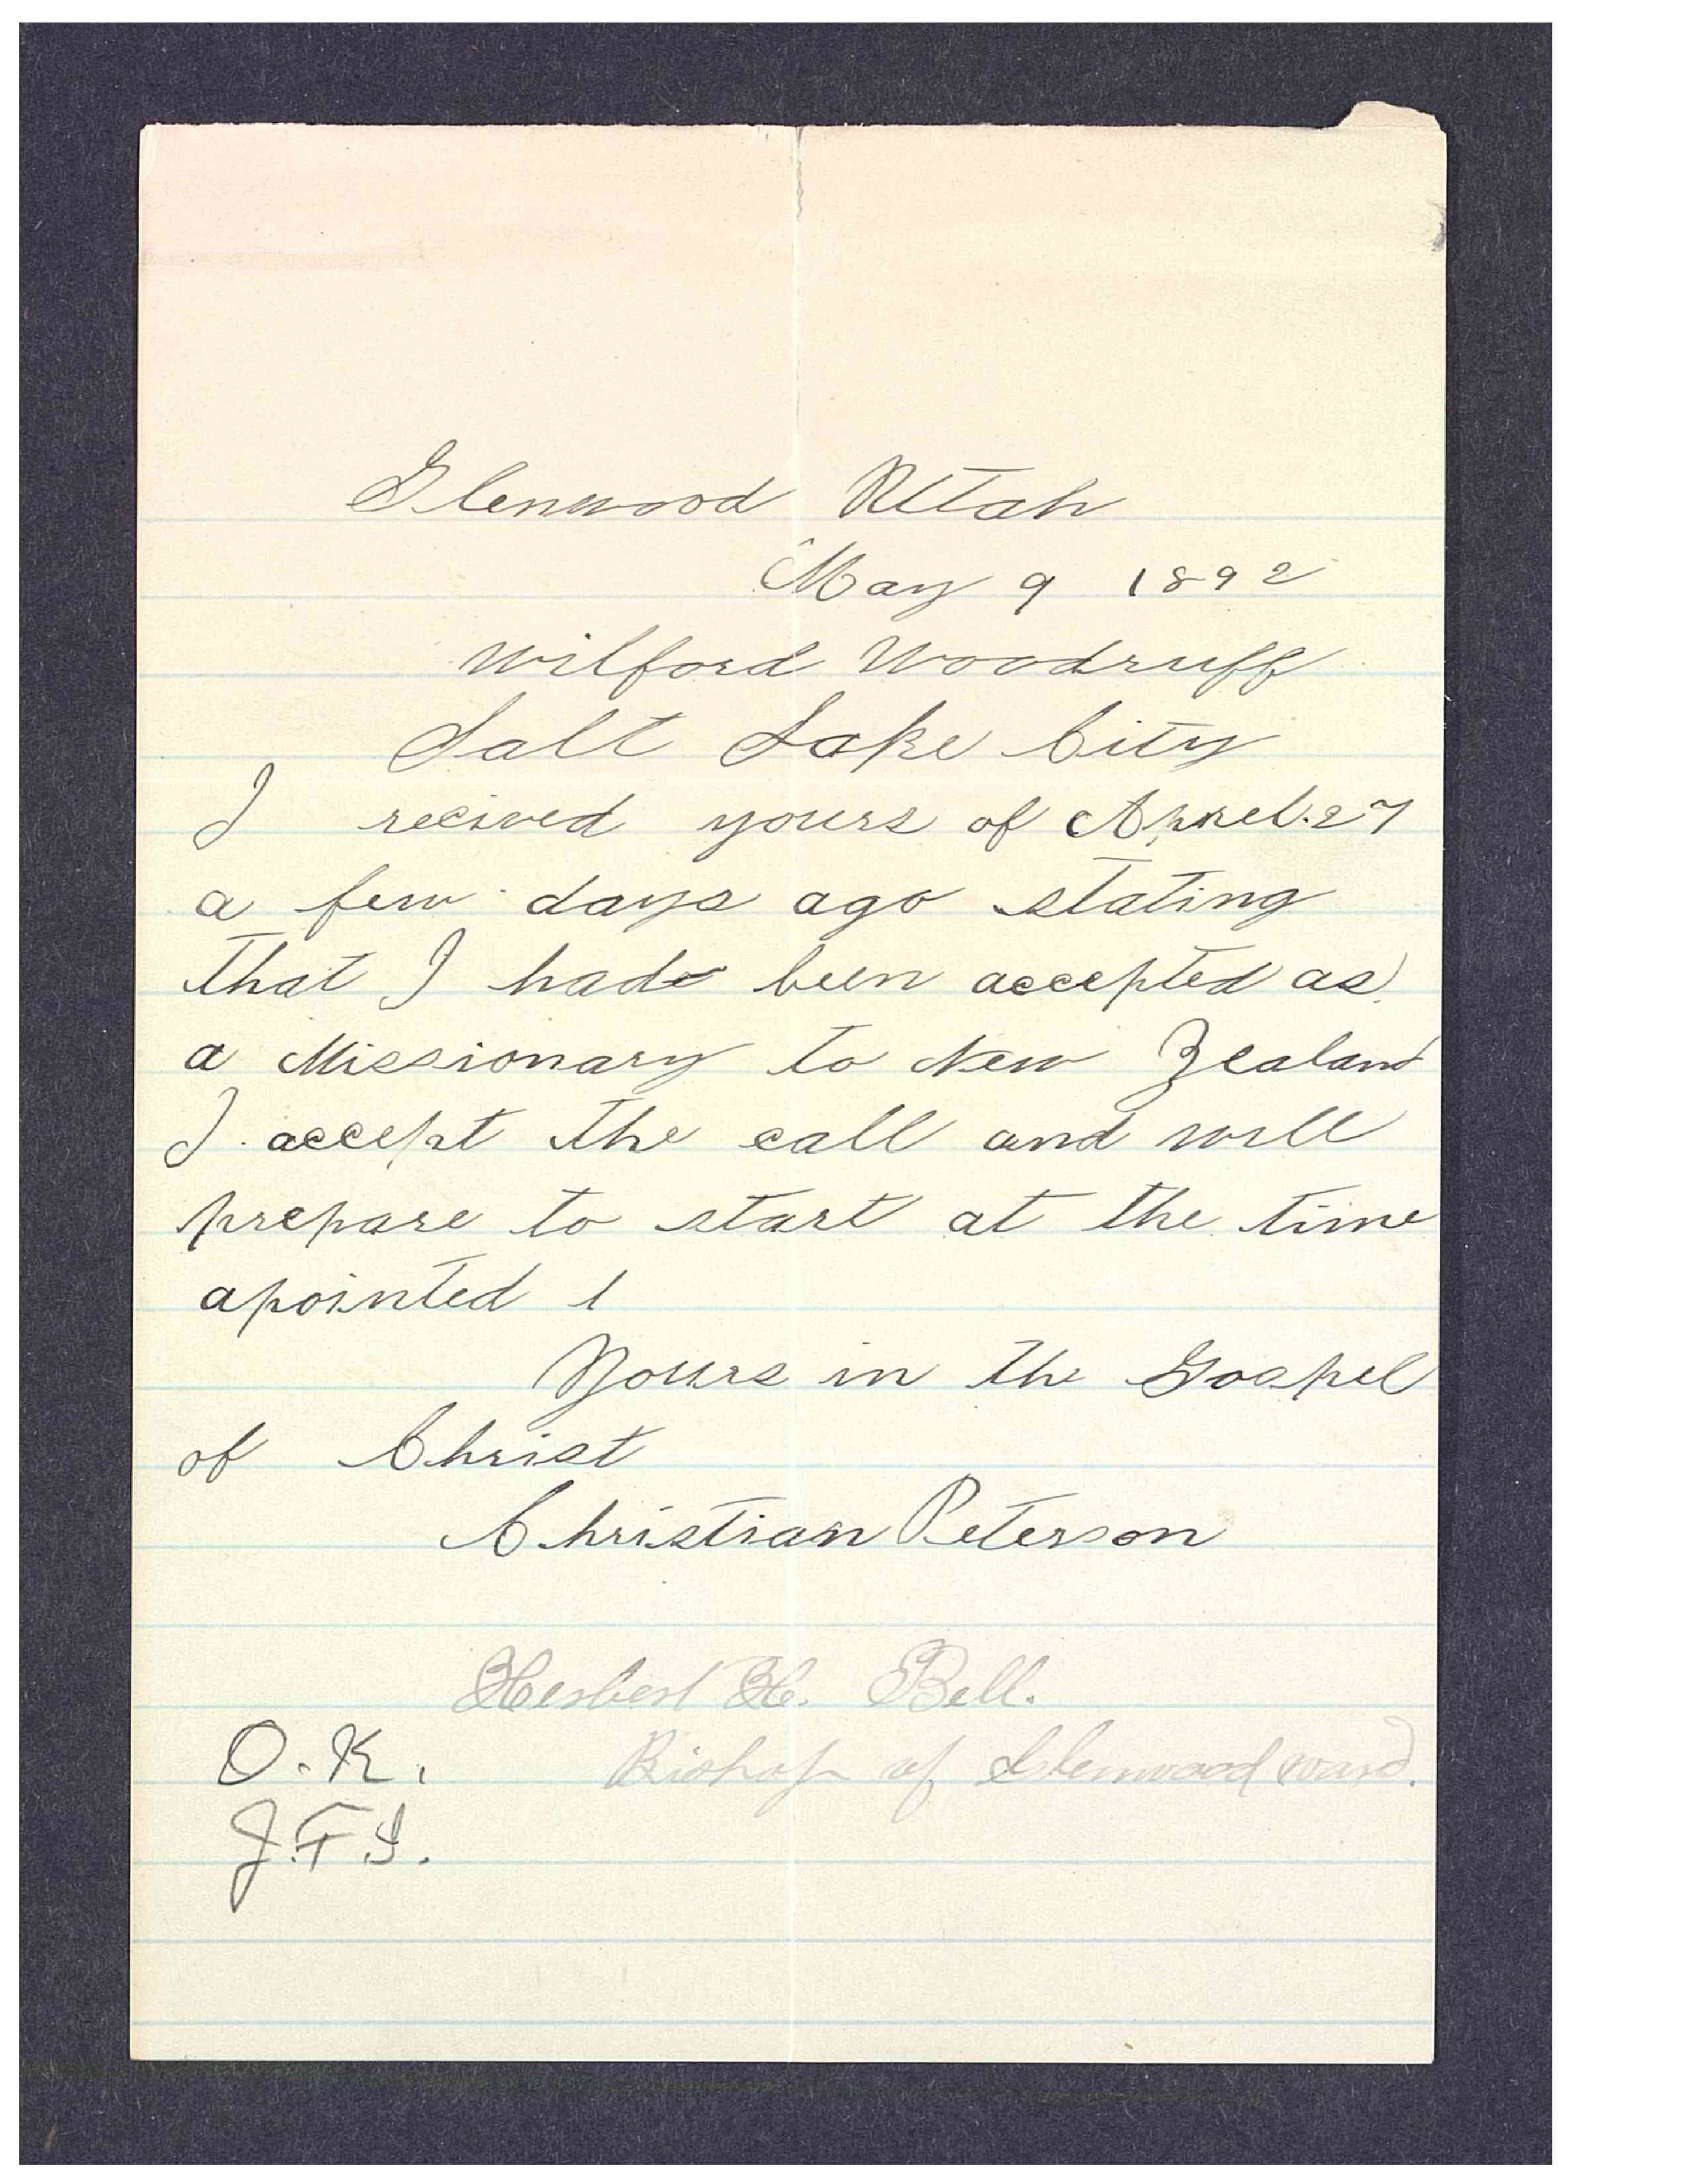 Glenwood Utah
May 9 1892
Wilford Woodruff
Salt Lake City
I recived yours of Aprel. 27
a few days ago stating
that I had been accepted as
a Missionary to New Zealand
I accept the call and will
prepare to start at the time
apointed
Yours in the Gospel
of Christ
Christian Peterson
Herbert H. Bell.
O.K. Bishop of Glenwood ward.
J.F.S.